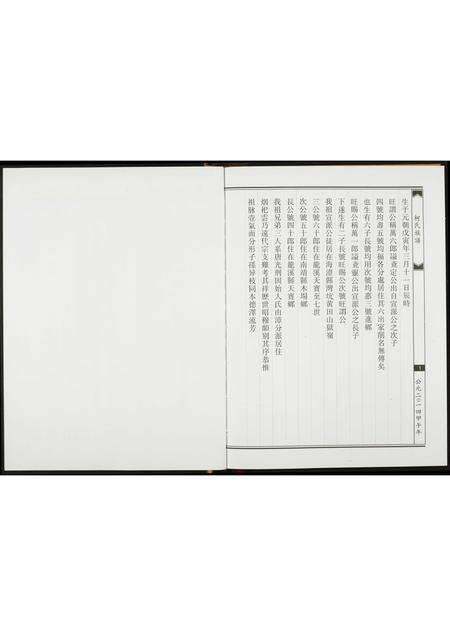 祖脉壹氣而分形子孫异枝同本德澤流芳
烟祀雲乃遠代宗支難考其祥歷世昭穆師別其序恭惟
我祖兄弟三人系唐光州固始人氏由漳分派居住
長公號四十郎住在龍溪縣天寶鄉
次公號五十郎住在南靖縣木場鄉
三公號六十郎住在龍溪天寶至七世
我祖宣派公徒居在海漳縣灣坑黃田山獄嶺
下遂生有二子長號旺賜公次號旺謂公
旺賜公稱萬一郎諡查靈公出宣派公之長子
也生有六子長號均用次號均惠三號進鄉
四號均壽五號均福各分處居住其六出家削名無傅矣
旺謂公稱萬六郎諡查定公出自宣派公之次子
生于元朝戊寅年三月十一日辰時
柯氏族譜
1
公元二〇一四甲午年